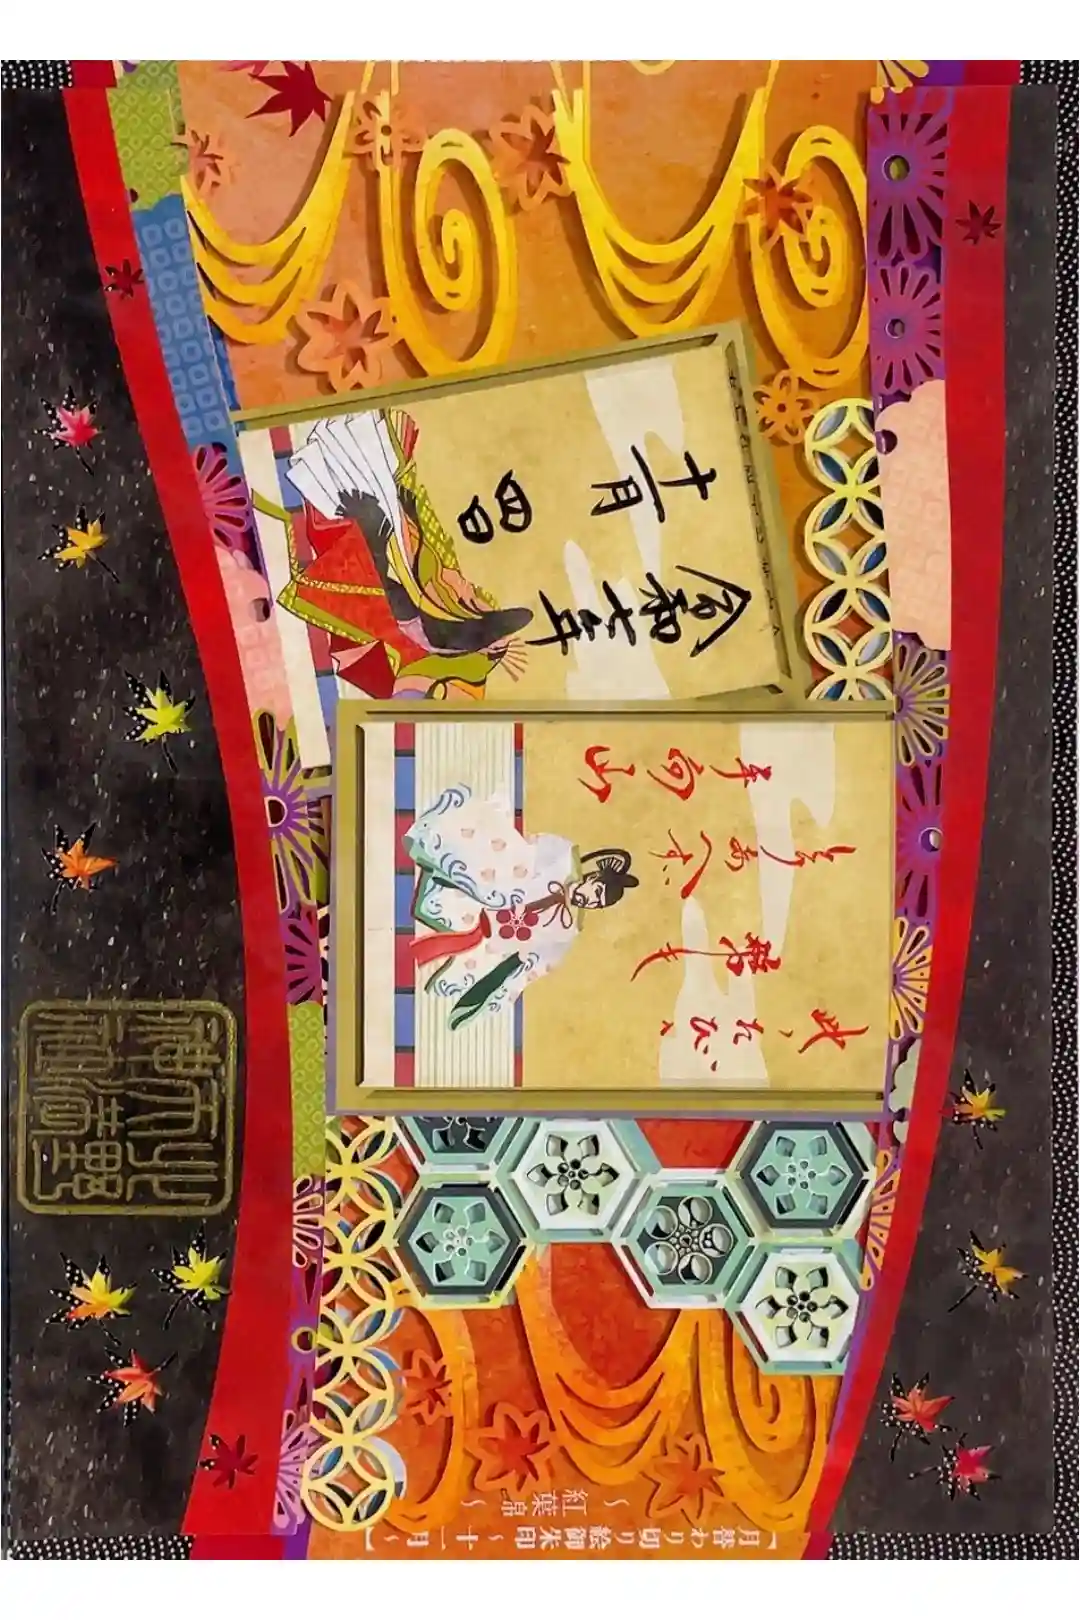 【月替わり切り絵御朱印～十一月～】
～紅葉帛～
此たびは
幣も
とりあへず
手向山
令和七年
十一月四日